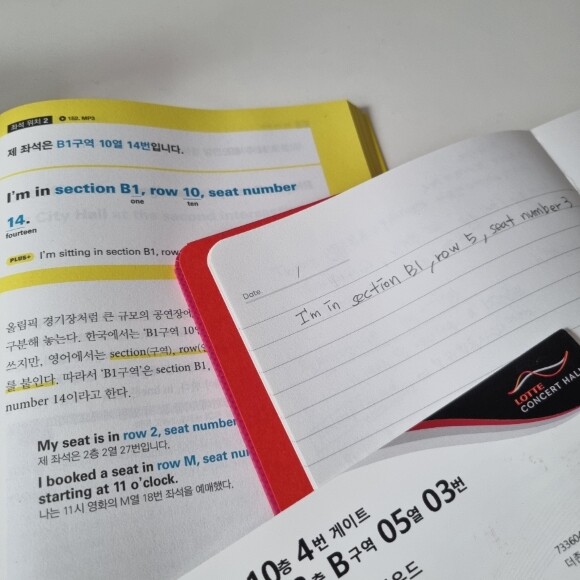 좌석 위치 2 152. MP3
제 좌석은 B1구역 10열 14번입니다.
I'm in section B1, row 10, seat number
one ten
14.
fourteen
PLUS+ I'm sitting in section B1, row
올림픽 경기장처럼 큰 규모의 공연장에
구분해 놓는다. 한국에서는 'B1구역 10열
쓰지만, 영어에서는 section(구역), row(열
를 붙인다. 따라서 'B1구역'은 section B1,
number 14이라고 한다.
My seat is in row 2, seat number
제 좌석은 2층 2열 27번입니다.
I booked a seat in row M, seat nu
starting at 11 o'clock.
나는 11시 영화의 M열 18번 좌석을 예매했다.
Date /
I'm in section B1, row 5, seat number 3
LOTTE
CONCERT HALL
10층 4번 게이트
층 B구역 05열 03번
733604